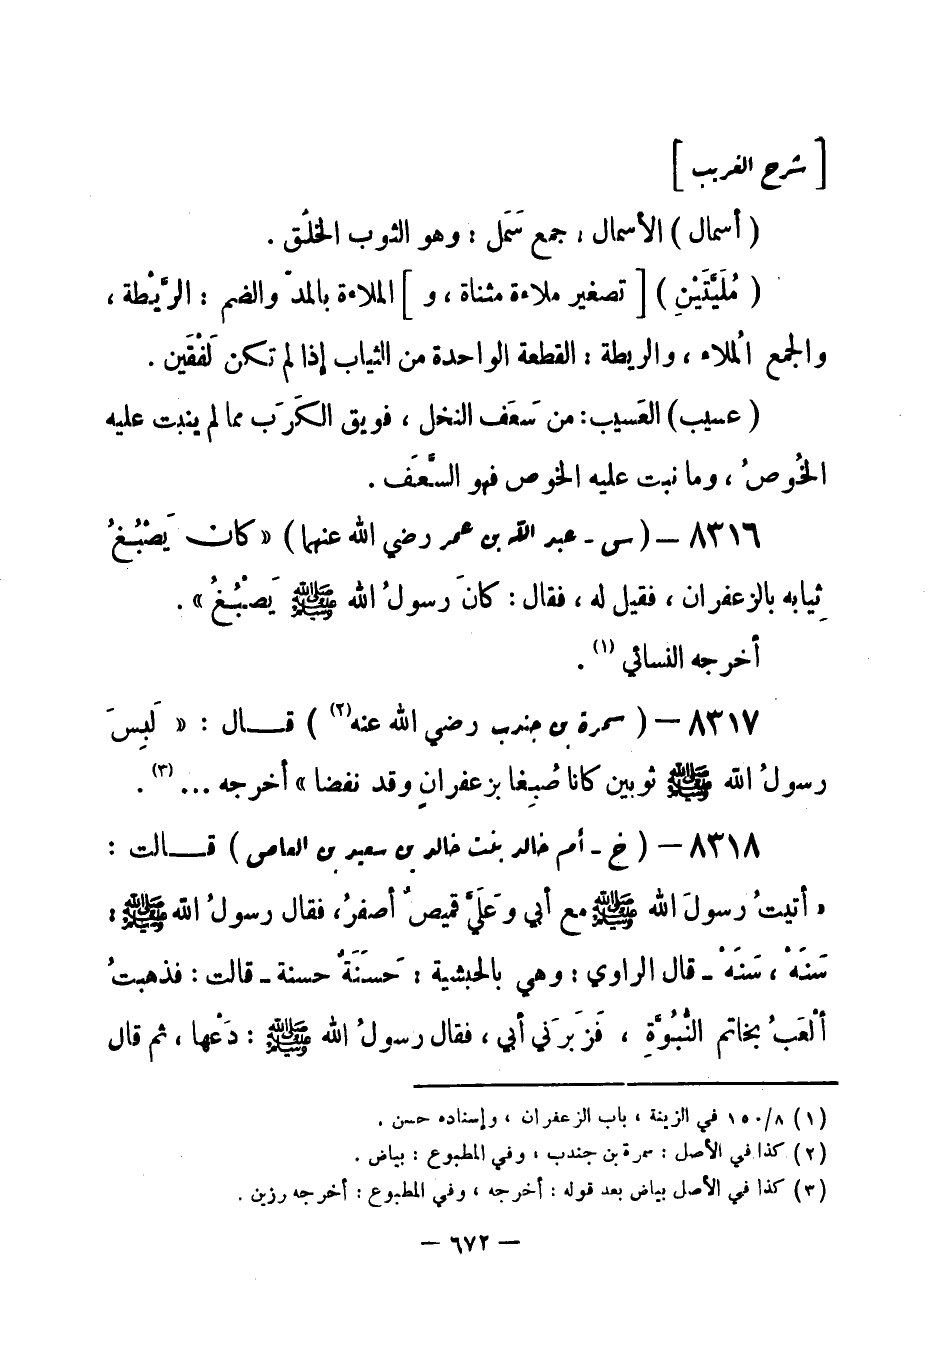 [ شرح الغريب ]
( أسمال ) الأسمال ، جمع سَمَل : وهو الثوب الخلَق .
( مُلَيَّتَيْنِ ) [ تصغير ملاءة مثناة ، و ] الملاءة بالمدّ والضم : الرَّيْطة ،
والجمع المُلاء ، والريطة : القطعة الواحدة من الثياب إذا لم تكن لَفْقَين .
( عسيب ) العَسيب : من سَعَف النخل ، فويق الكَرَب مما لم ينبت عليه
الخُوصُ ، وما نبت عليه الخوص فهو السَّعَف .
٨٣١٦ – ( س - عبد الله بن عمر رضي الله عنهما ) « كان يَصْبُغُ
ثِيابه بالزعفران ، فقيل له ، فقال : كانَ رسولُ الله ﷺ يَصْبُغُ » .
أخرجه النسائي (١) .
٨٣١٧ – ( سمرة بن جندب رضي الله عنه (٢) ) قـــال : « لَبِسَ
رسولُ الله ﷺ ثوبين كانا صُبِغا بزعفرانٍ وقد نفضا » أخرجه ... (٣) .
٨٣١٨ – ( خ - أم خالد بنت خالد بن سعيد بن العاص ) قـــالت :
« أتيتُ رسولَ الله ﷺ مع أبي وعَلَيَّ قميصٌ أصفرُ ، فقال رسولُ الله ﷺ :
سَنَهْ ، سَنَهْ - قال الراوي : وهي بالحبشية : حَسَنَةٌ حسنة - قالت : فذهبتُ
ألْعَبُ بخاتم النُّبُوَّةِ ، فَزَبَرَني أبي ، فقال رسولُ الله ﷺ : دَعْها ، ثم قال
(١) ٨/١٥٠ في الزينة ، باب الزعفران ، وإسناده حسن .
(٢) كذا في الأصل : سمرة بن جندب ، وفي المطبوع : بياض .
(٣) كذا في الأصل بياض بعد قوله : أخرجه ، وفي المطبوع : أخرجه رزين .
– ٦٧٢ –